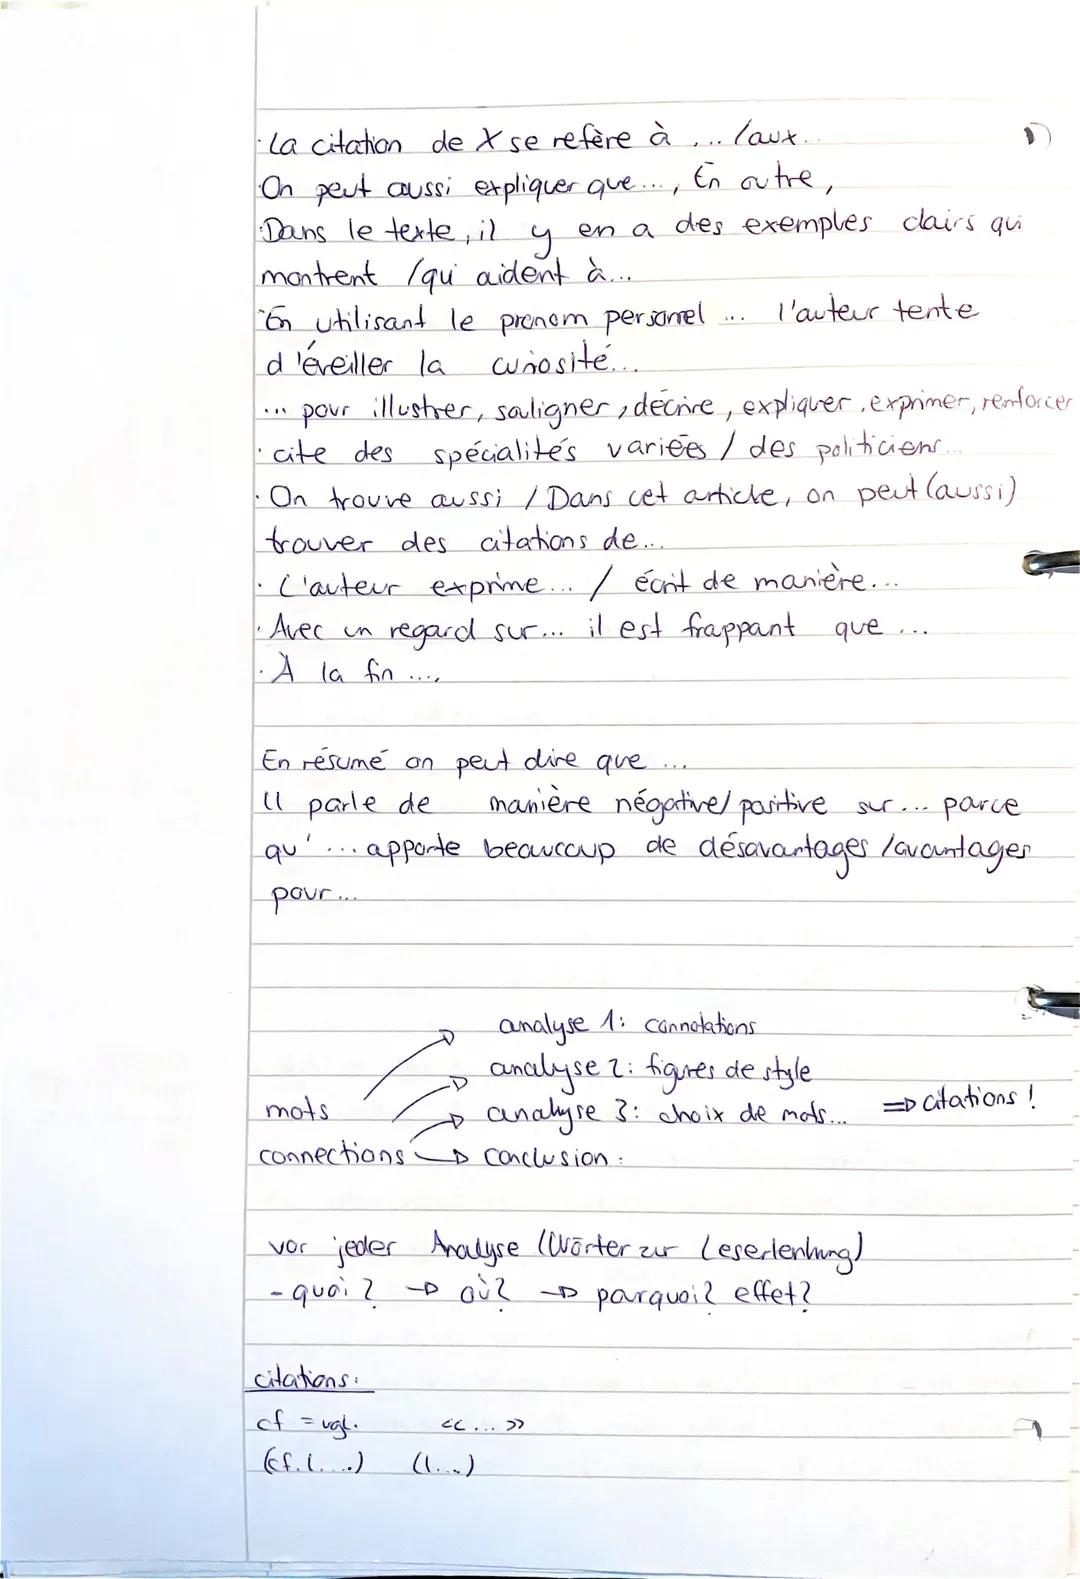 · La citation de X se refère à ... /aux...
· On peut aussi expliquer que..., En outre,
· Dans le texte, il y en a des exemples clairs qui
montrent /qui aident à...
· En utilisant le prenom personnel ... l'auteur tente
d'éveiller la curiosité...
... pour illustrer, souligner, décrire, expliquer, exprimer, renforcer
· cite des spécialités variées / des politiciens...
· On trouve aussi / Dans cet article, on peut (aussi)
trouver des citations de...
· L'auteur exprime... / écrit de manière...
· Avec un regard sur... il est frappant que ...
· À la fin ....
En résumé on peut dire que ...
Il parle de manière négative/ positive sur... parce
qu' ... apporte beaucoup de désavantages /avantages
pour...
analyse 1: connotations
analyse 2: figures de style
mots analyse 3: choix de mots... => citations !
connections → conclusion:
vor jeder Analyse (Wörter zur Leserlenkung)
- quoi ? → où? → pourquoi? effet?
citations:
cf = vgl. << ... >>
(cf. l. ...) (l. ...)